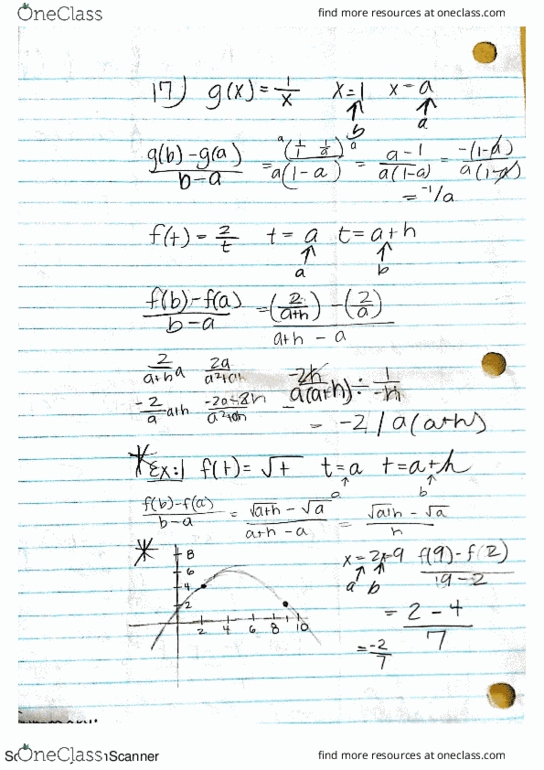 OneClass
find more resources at oneclass.com
17) g(x) = 1/x x=1 x=a
b a
g(b)-g(a) / b-a = a(1/1 - 1/a)a / a(1-a) = a-1 / a(1-a) = -(1-a) / a(1-a)
= -1/a
f(t) = 2/t t=a t=a+h
a b
f(b)-f(a) / b-a = (2/a+h) - (2/a) / a+h - a
2/a+h a 2a/a²+ah -2h / a(a+h) ÷ 1/-h
-2/a a+h -2a-2h/a²+ah = -2/a(a+h)
*Ex:1 f(t) = √t t=a t=a+h
a b
f(b)-f(a) / b-a = √a+h - √a / a+h - a = √a+h - √a / h
* 8
6
4
2
2 4 6 8 10
x=2 x=9 f(9)-f(2) / 9-2
a b
= 2-4 / 7
= -2/7
OneClass
Scanner
find more resources at oneclass.com